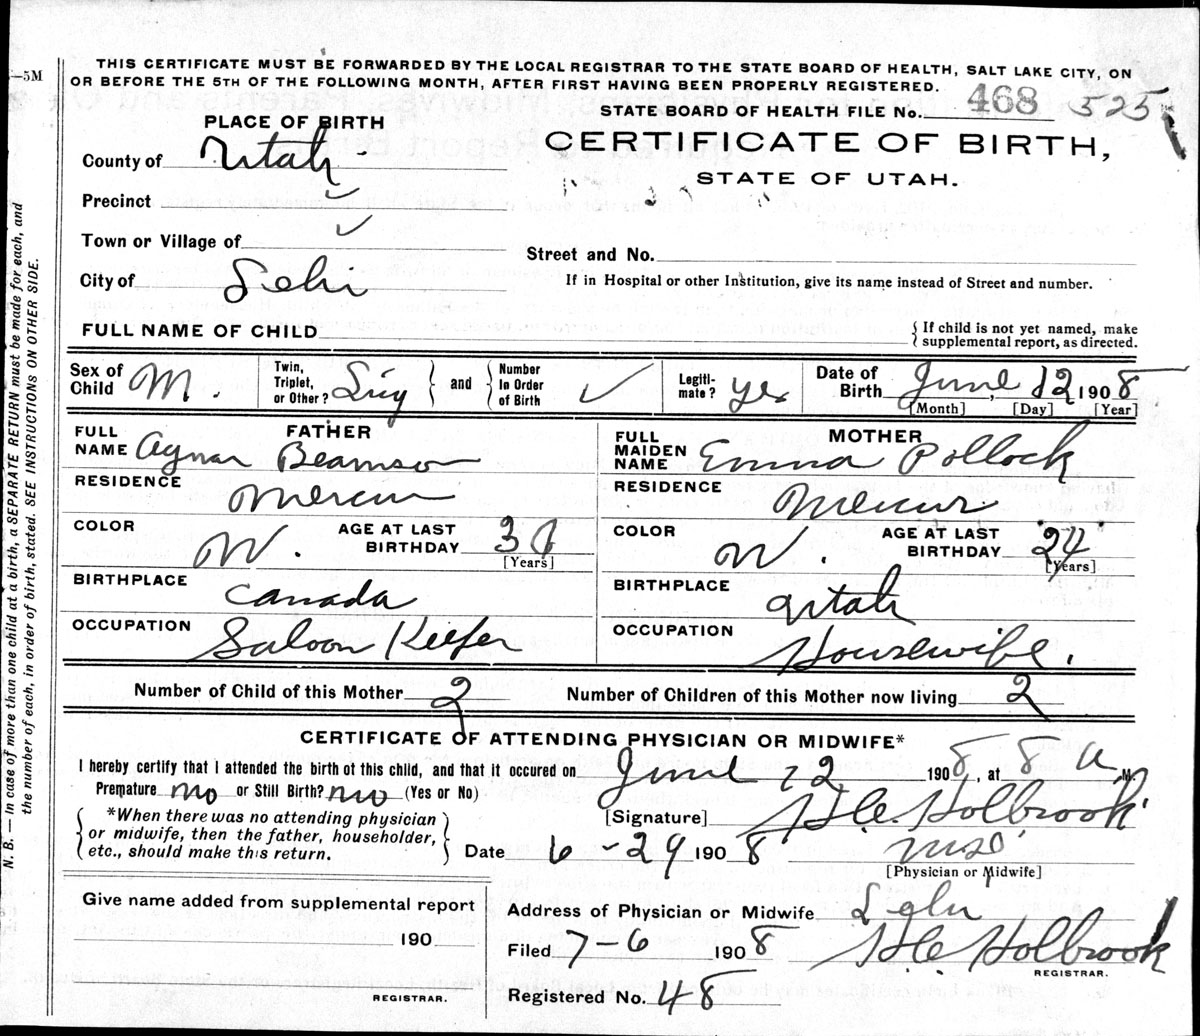 —5M
THIS CERTIFICATE MUST BE FORWARDED BY THE LOCAL REGISTRAR TO THE STATE BOARD OF HEALTH, SALT LAKE CITY, ON
OR BEFORE THE 5TH OF THE FOLLOWING MONTH, AFTER FIRST HAVING BEEN PROPERLY REGISTERED.
STATE BOARD OF HEALTH FILE No. 468 525
PLACE OF BIRTH
CERTIFICATE OF BIRTH,
STATE OF UTAH.
County of Utah
Precinct ✓
Town or Village of ✓
Street and No.
City of Lehi
If in Hospital or other Institution, give its name instead of Street and number.
FULL NAME OF CHILD
{ If child is not yet named, make
supplemental report, as directed.
Sex of Child M.
Twin, Triplet, or Other? } and { Number In Order of Birth ✓
Legiti-mate? yes
Date of Birth June 12 1908
[Month] [Day] [Year]
FATHER
FULL NAME
RESIDENCE Mercur
COLOR W.
AGE AT LAST BIRTHDAY
[Years]
BIRTHPLACE Canada
OCCUPATION Saloon Keeper
MOTHER
FULL MAIDEN NAME Emma Pollock
RESIDENCE Mercur
COLOR W.
AGE AT LAST BIRTHDAY 24
[Years]
BIRTHPLACE Utah
OCCUPATION Housewife.
Number of Child of this Mother 2
Number of Children of this Mother now living 2
CERTIFICATE OF ATTENDING PHYSICIAN OR MIDWIFE*
I hereby certify that I attended the birth of this child, and that it occured on June 12 1908, at 8 a M.
Premature no or Still Birth? no (Yes or No)
[Signature] Holbrook
{ *When there was no attending physician
or midwife, then the father, householder,
etc., should make this return. }
Date 6-29 1908
[Physician or Midwife]
Give name added from supplemental report
190
REGISTRAR.
Address of Physician or Midwife Lehi
Filed 7-6 1908 Holbrook
REGISTRAR.
Registered No. 48
N. B.—In case of more than one child at a birth, a SEPARATE RETURN must be made for each, and
the number of each, in order of birth, stated. SEE INSTRUCTIONS ON OTHER SIDE.